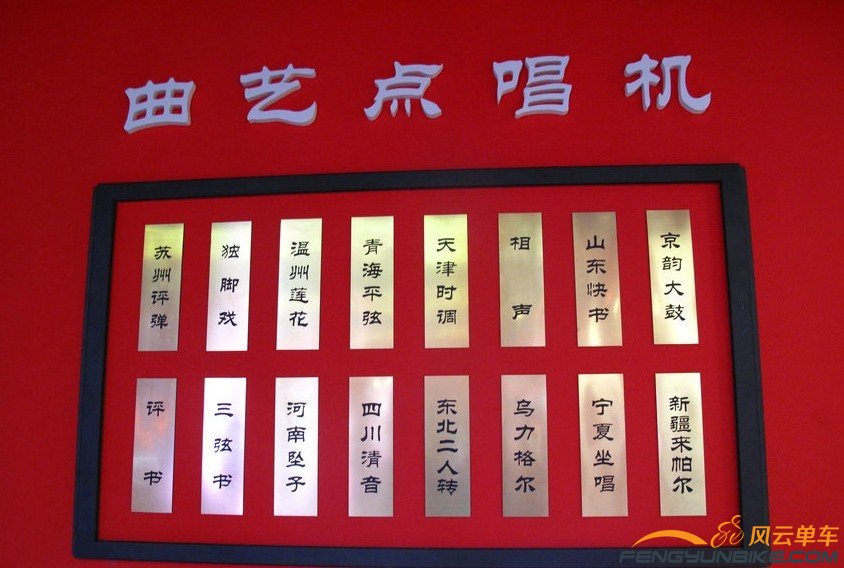 曲艺点唱机
苏州评弹
独脚戏
温州莲花
青海平弦
天津时调
相声
山东快书
京韵大鼓
评书
三弦书
河南坠子
四川清音
东北二人转
乌力格尔
宁夏坐唱
新疆来帕尔
风云单车
FENGYUNBIKE.COM